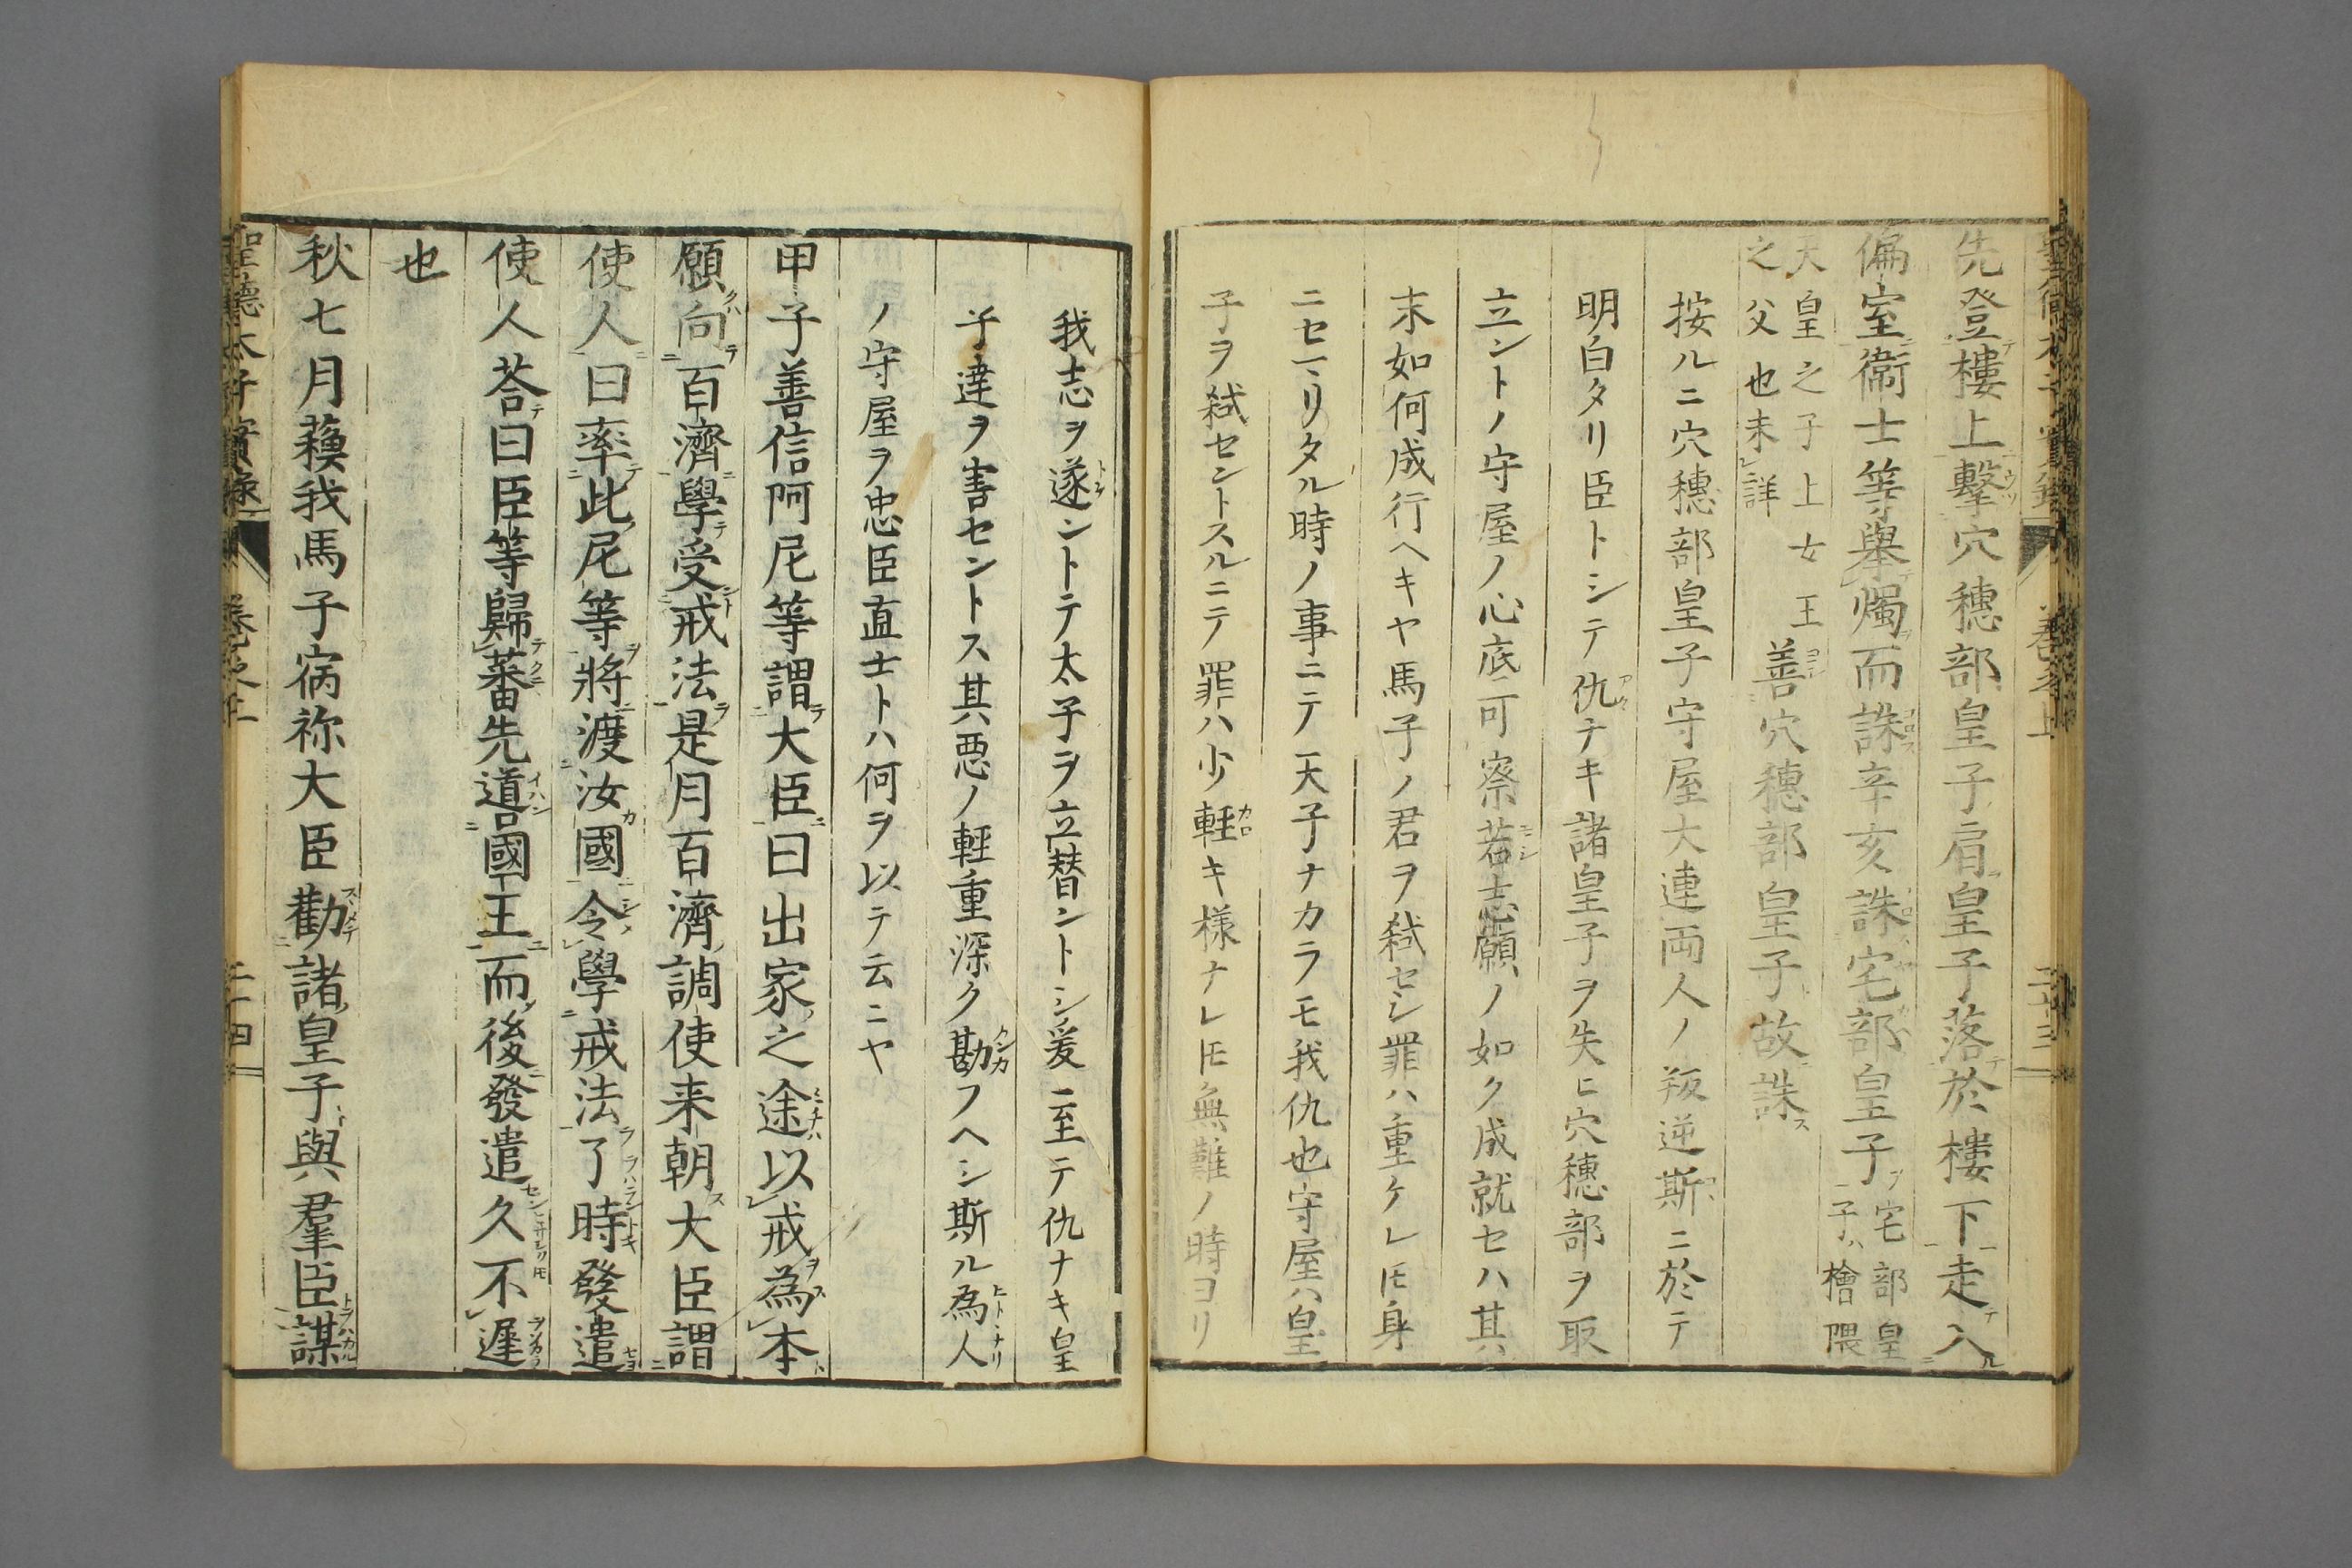 先登樓上擊穴穗部皇子肩皇子落於樓下走入
偏室衞士等舉燭而誅辛亥誅宅部皇子宅部皇子ハ檜隈
天皇之子上女王之父也未詳善穴穗部皇子故誅
按ルニ穴穗部皇子守屋大連両人ノ叛逆斯ニ於テ
明白タリ臣トシテ仇ナキ諸皇子ヲ失ヒ穴穗部ヲ取
立ントノ守屋ノ心底可察若志願ノ如ク成就セハ其
末如何成行ヘキヤ馬子ノ君ヲ弑セシ罪ハ重ケレ𪜈身
ニセマリタル時ノ事ニテ天子ナカラモ我仇也守屋ハ皇
子ヲ弑セントスルニテ罪ハ少軽キ様ナレ𪜈無難ノ時ヨリ
我志ヲ遂ントテ太子ヲ立替ントシ爰ニ至テ仇ナキ皇
子達ヲ害セントス其悪ノ軽重深ク勘フヘシ斯ル為人
ノ守屋ヲ忠臣直士トハ何ヲ以テ云ニヤ
甲子善信阿尼等謂大臣曰出家之途以戒為本
願向百濟學受戒法是月百濟調使来朝大臣謂
使人曰率此尼等將渡汝國令學戒法了時發遣
使人荅曰臣等歸蕃先噵國王而後發遣久不遲
也
秋七月蘓我馬子病祢大臣勸諸皇子與羣臣謀
聖德太子實録 卷之上 二十四